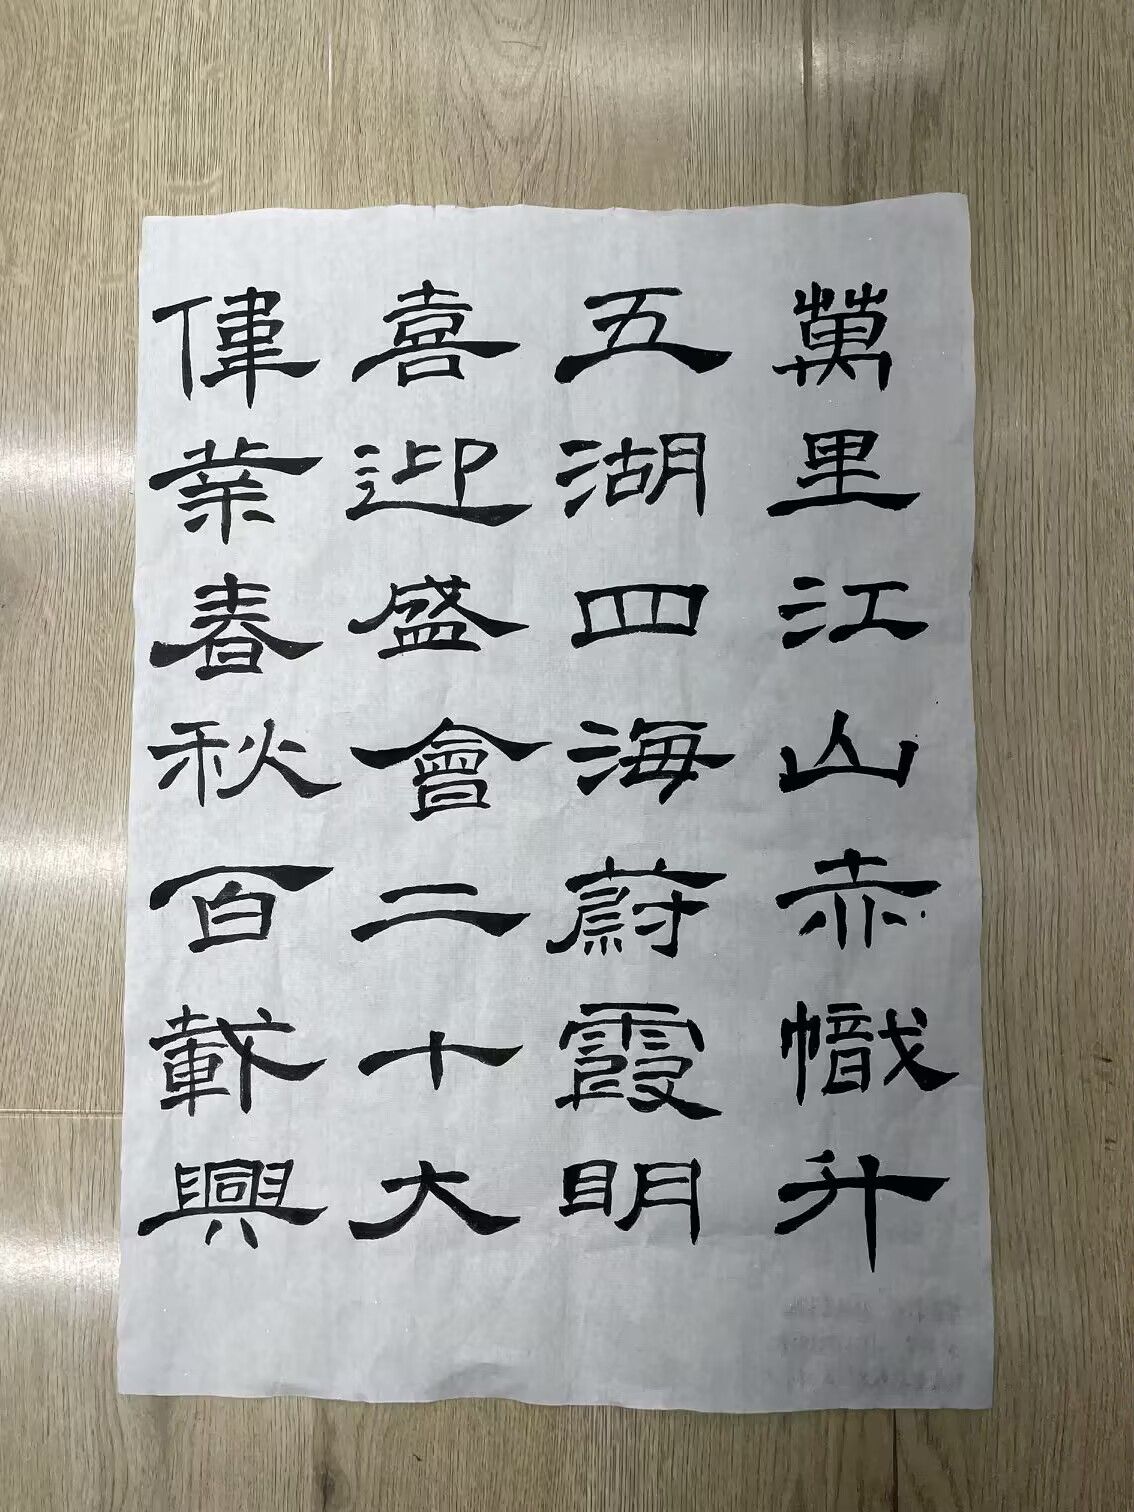 萬里江山赤幟升
五湖四海蔚霞明
喜迎盛會二十大
偉業春秋百載興